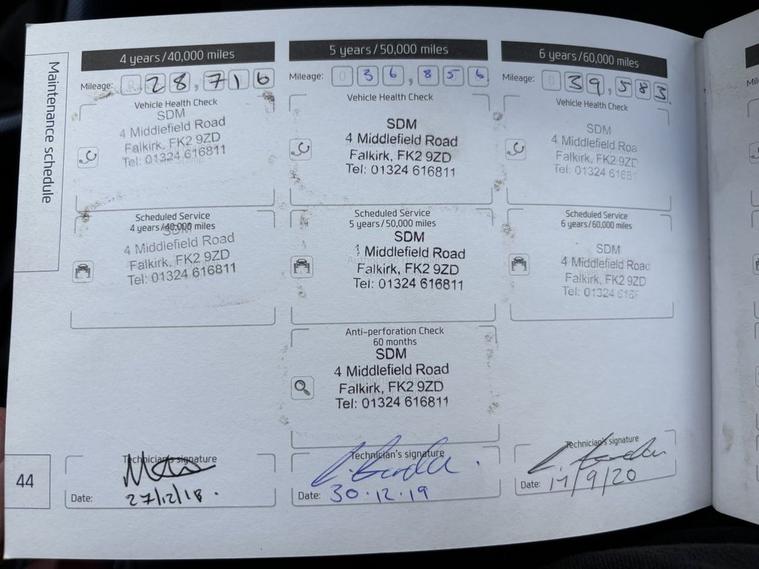 Maintenance schedule
4 years/40,000 miles
Mileage: 0 28,716
Vehicle Health Check
SDM
4 Middlefield Road
Falkirk, FK2 9ZD
Tel: 01324 616811
Scheduled Service
4 years/40,000 miles
SDM
4 Middlefield Road
Falkirk, FK2 9ZD
Tel: 01324 616811
Technician's signature
Date: 27/12/18.
5 years/50,000 miles
Mileage: 0 36,856
Vehicle Health Check
SDM
4 Middlefield Road
Falkirk, FK2 9ZD
Tel: 01324 616811
Scheduled Service
5 years/50,000 miles
SDM
4 Middlefield Road
Falkirk, FK2 9ZD
Tel: 01324 616811
Anti-perforation Check
60 months
SDM
4 Middlefield Road
Falkirk, FK2 9ZD
Tel: 01324 616811
Technician's signature
Date: 30.12.19
6 years/60,000 miles
Mileage: 0 39,583
Vehicle Health Check
SDM
4 Middlefield Roa
Falkirk, FK2 9ZD
Tel: 01324 6168
Scheduled Service
6 years/60,000 miles
SDM
4 Middlefield Road
Falkirk, FK2 9ZD
Tel: 01324 6168
Technician's signature
Date: /9/20
44